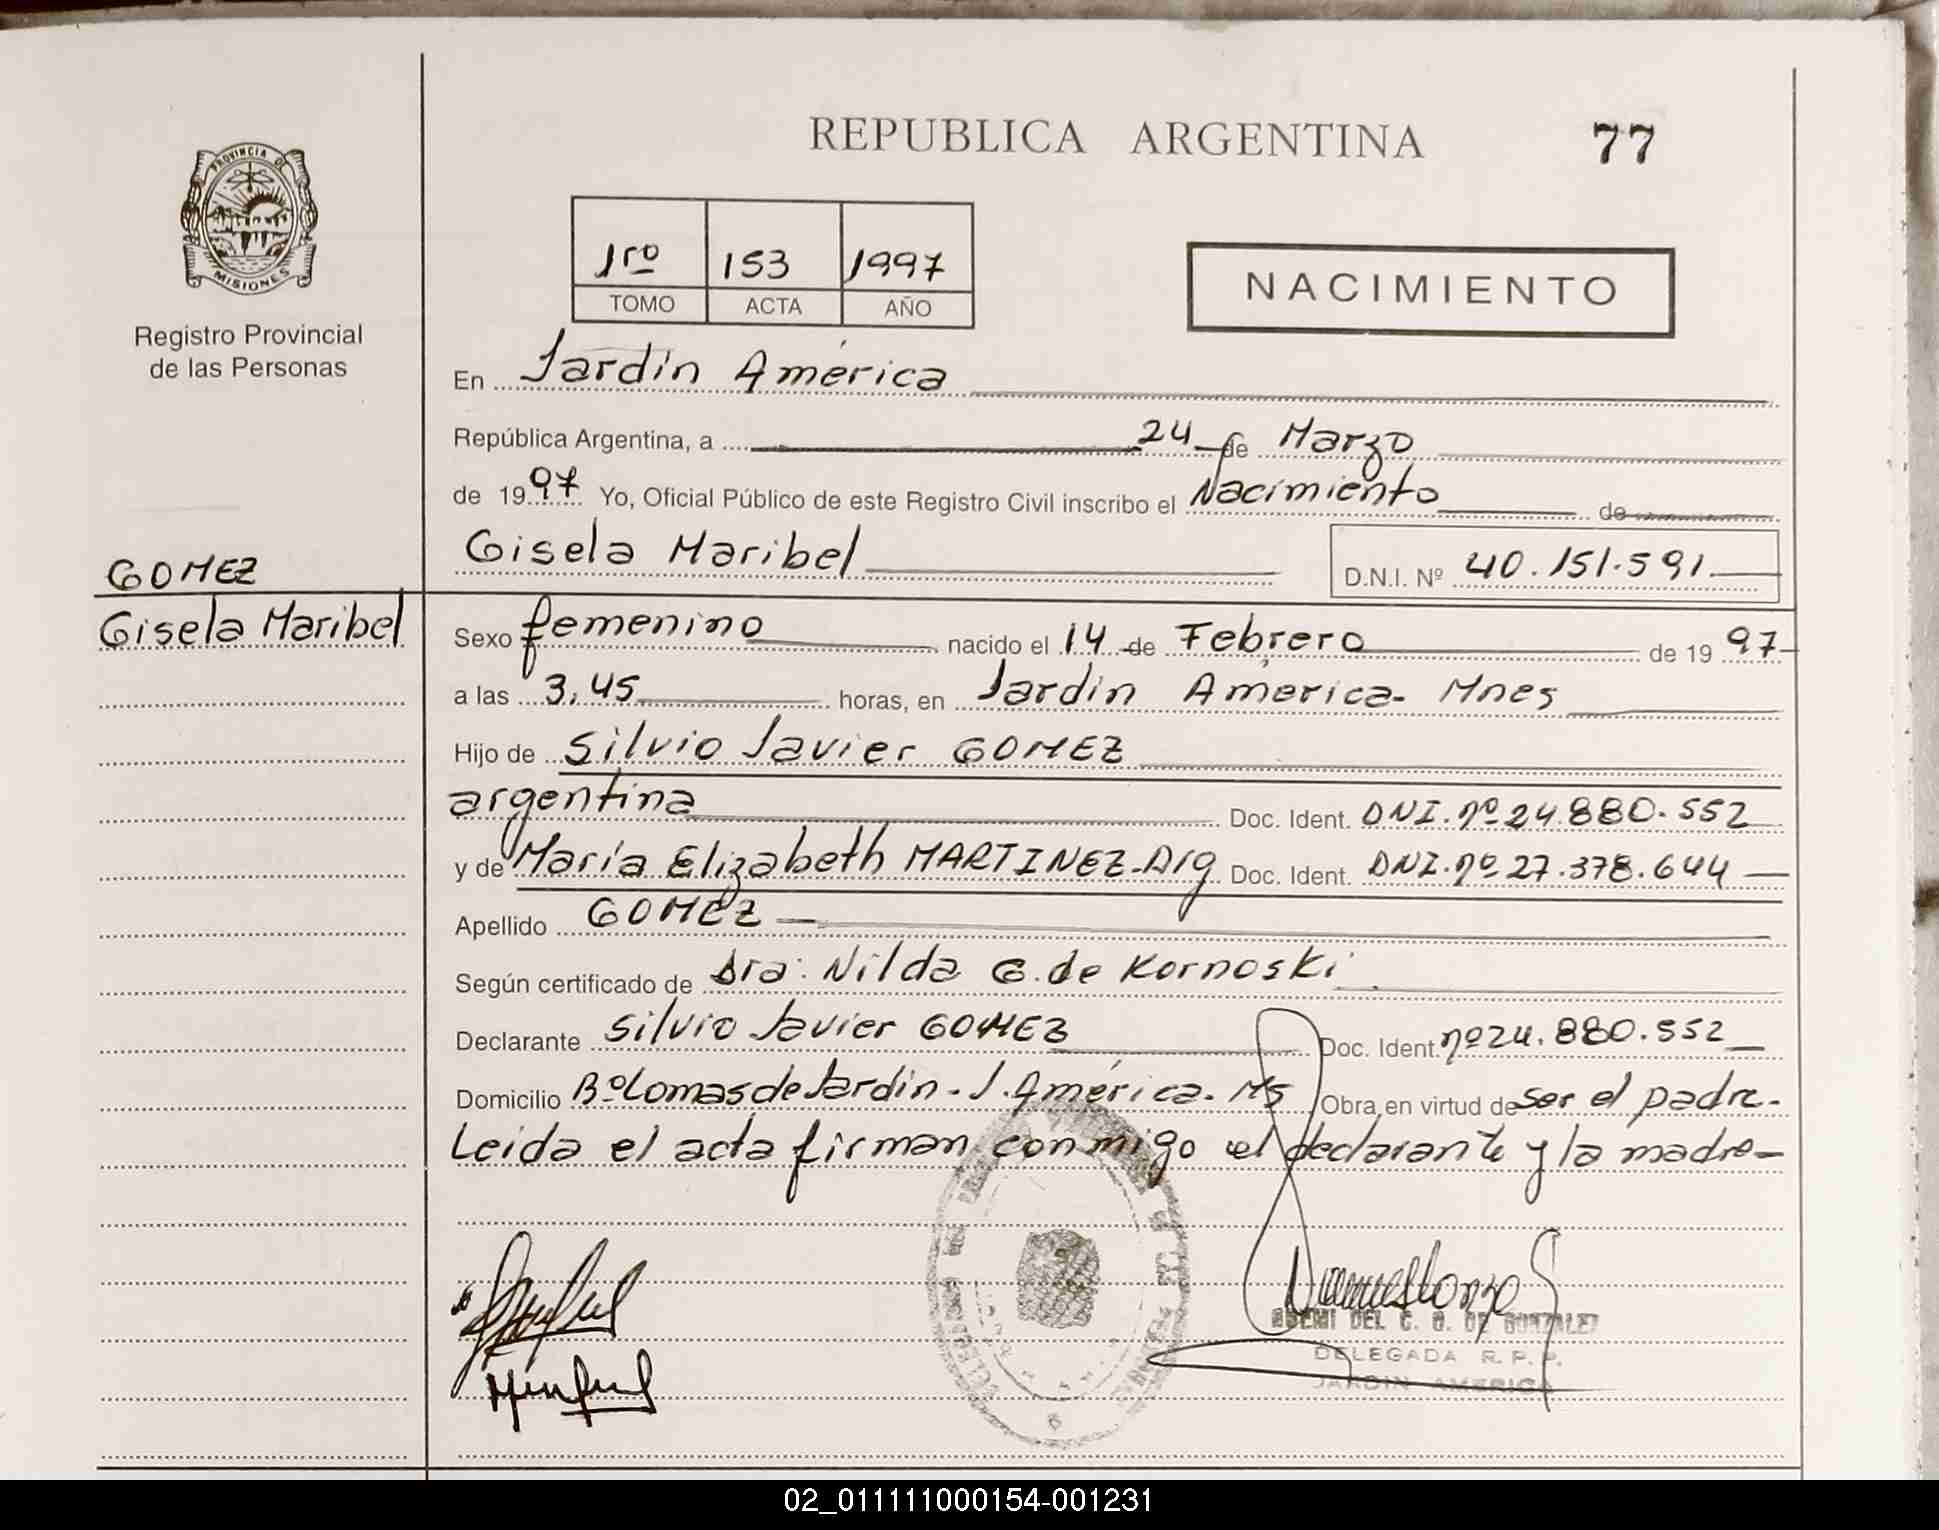 REPUBLICA ARGENTINA 77
PROVINCIA DE
MISIONES
Registro Provincial
de las Personas
1ro 153 1997
TOMO ACTA AÑO
NACIMIENTO
En Jardín América
República Argentina, a 24 de Marzo
de 1997 Yo, Oficial Público de este Registro Civil inscribo el Nacimiento de
Gisela Maribel D.N.I. Nº 40.151.591
GOMEZ
Gisela Maribel
Sexo femenino nacido el 14 de Febrero de 1997
a las 3,45 horas, en Jardín America- Mnes
Hijo de Silvio Javier GOMEZ
argentina Doc. Ident. DNI.nº 24.880.552
y de María Elizabeth MARTINEZ-Arg Doc. Ident. DNI.nº 27.378.644
Apellido GOMEZ
Según certificado de Dra: Nilda G. de Kornoski
Declarante Silvio Javier GOMEZ Doc. Ident. nº 24.880.552
Domicilio Bº Lomas de Jardín - J. América. Ms Obra en virtud de ser el padre-
Leida el acta firman conmigo el declarante y la madre-
DEL C. G. DE GONZALEZ
DELEGADA R. P. P.
JARDIN AMERICA
02_011111000154-001231